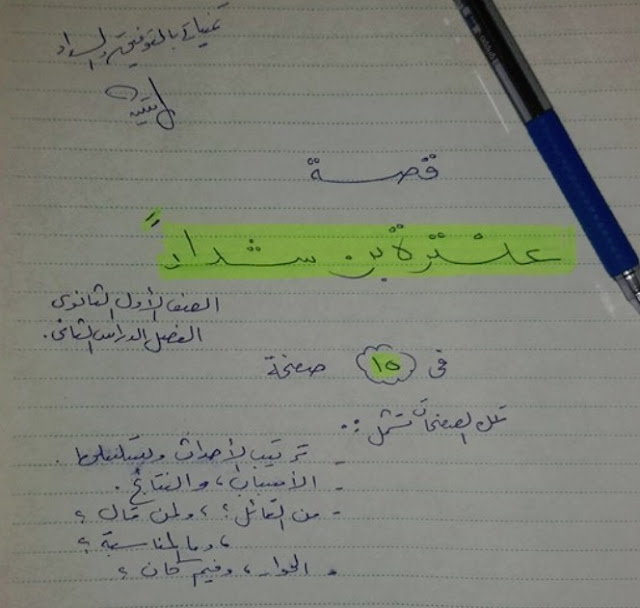 تمنياتى بالتوفيق والسداد
قصة
عنترة بن شداد
الصف الأول الثانوى
الفصل الدراسى الثانى.
فى ١٥ صفحة
تلك الصفحات تشمل :.
ترتيب الأحداث وتسلسلها.
- الأسباب، والنتائج.
- من القائل؟، ولمن قال؟
، وما المناسبة؟
- الحوار، وفيم كان؟